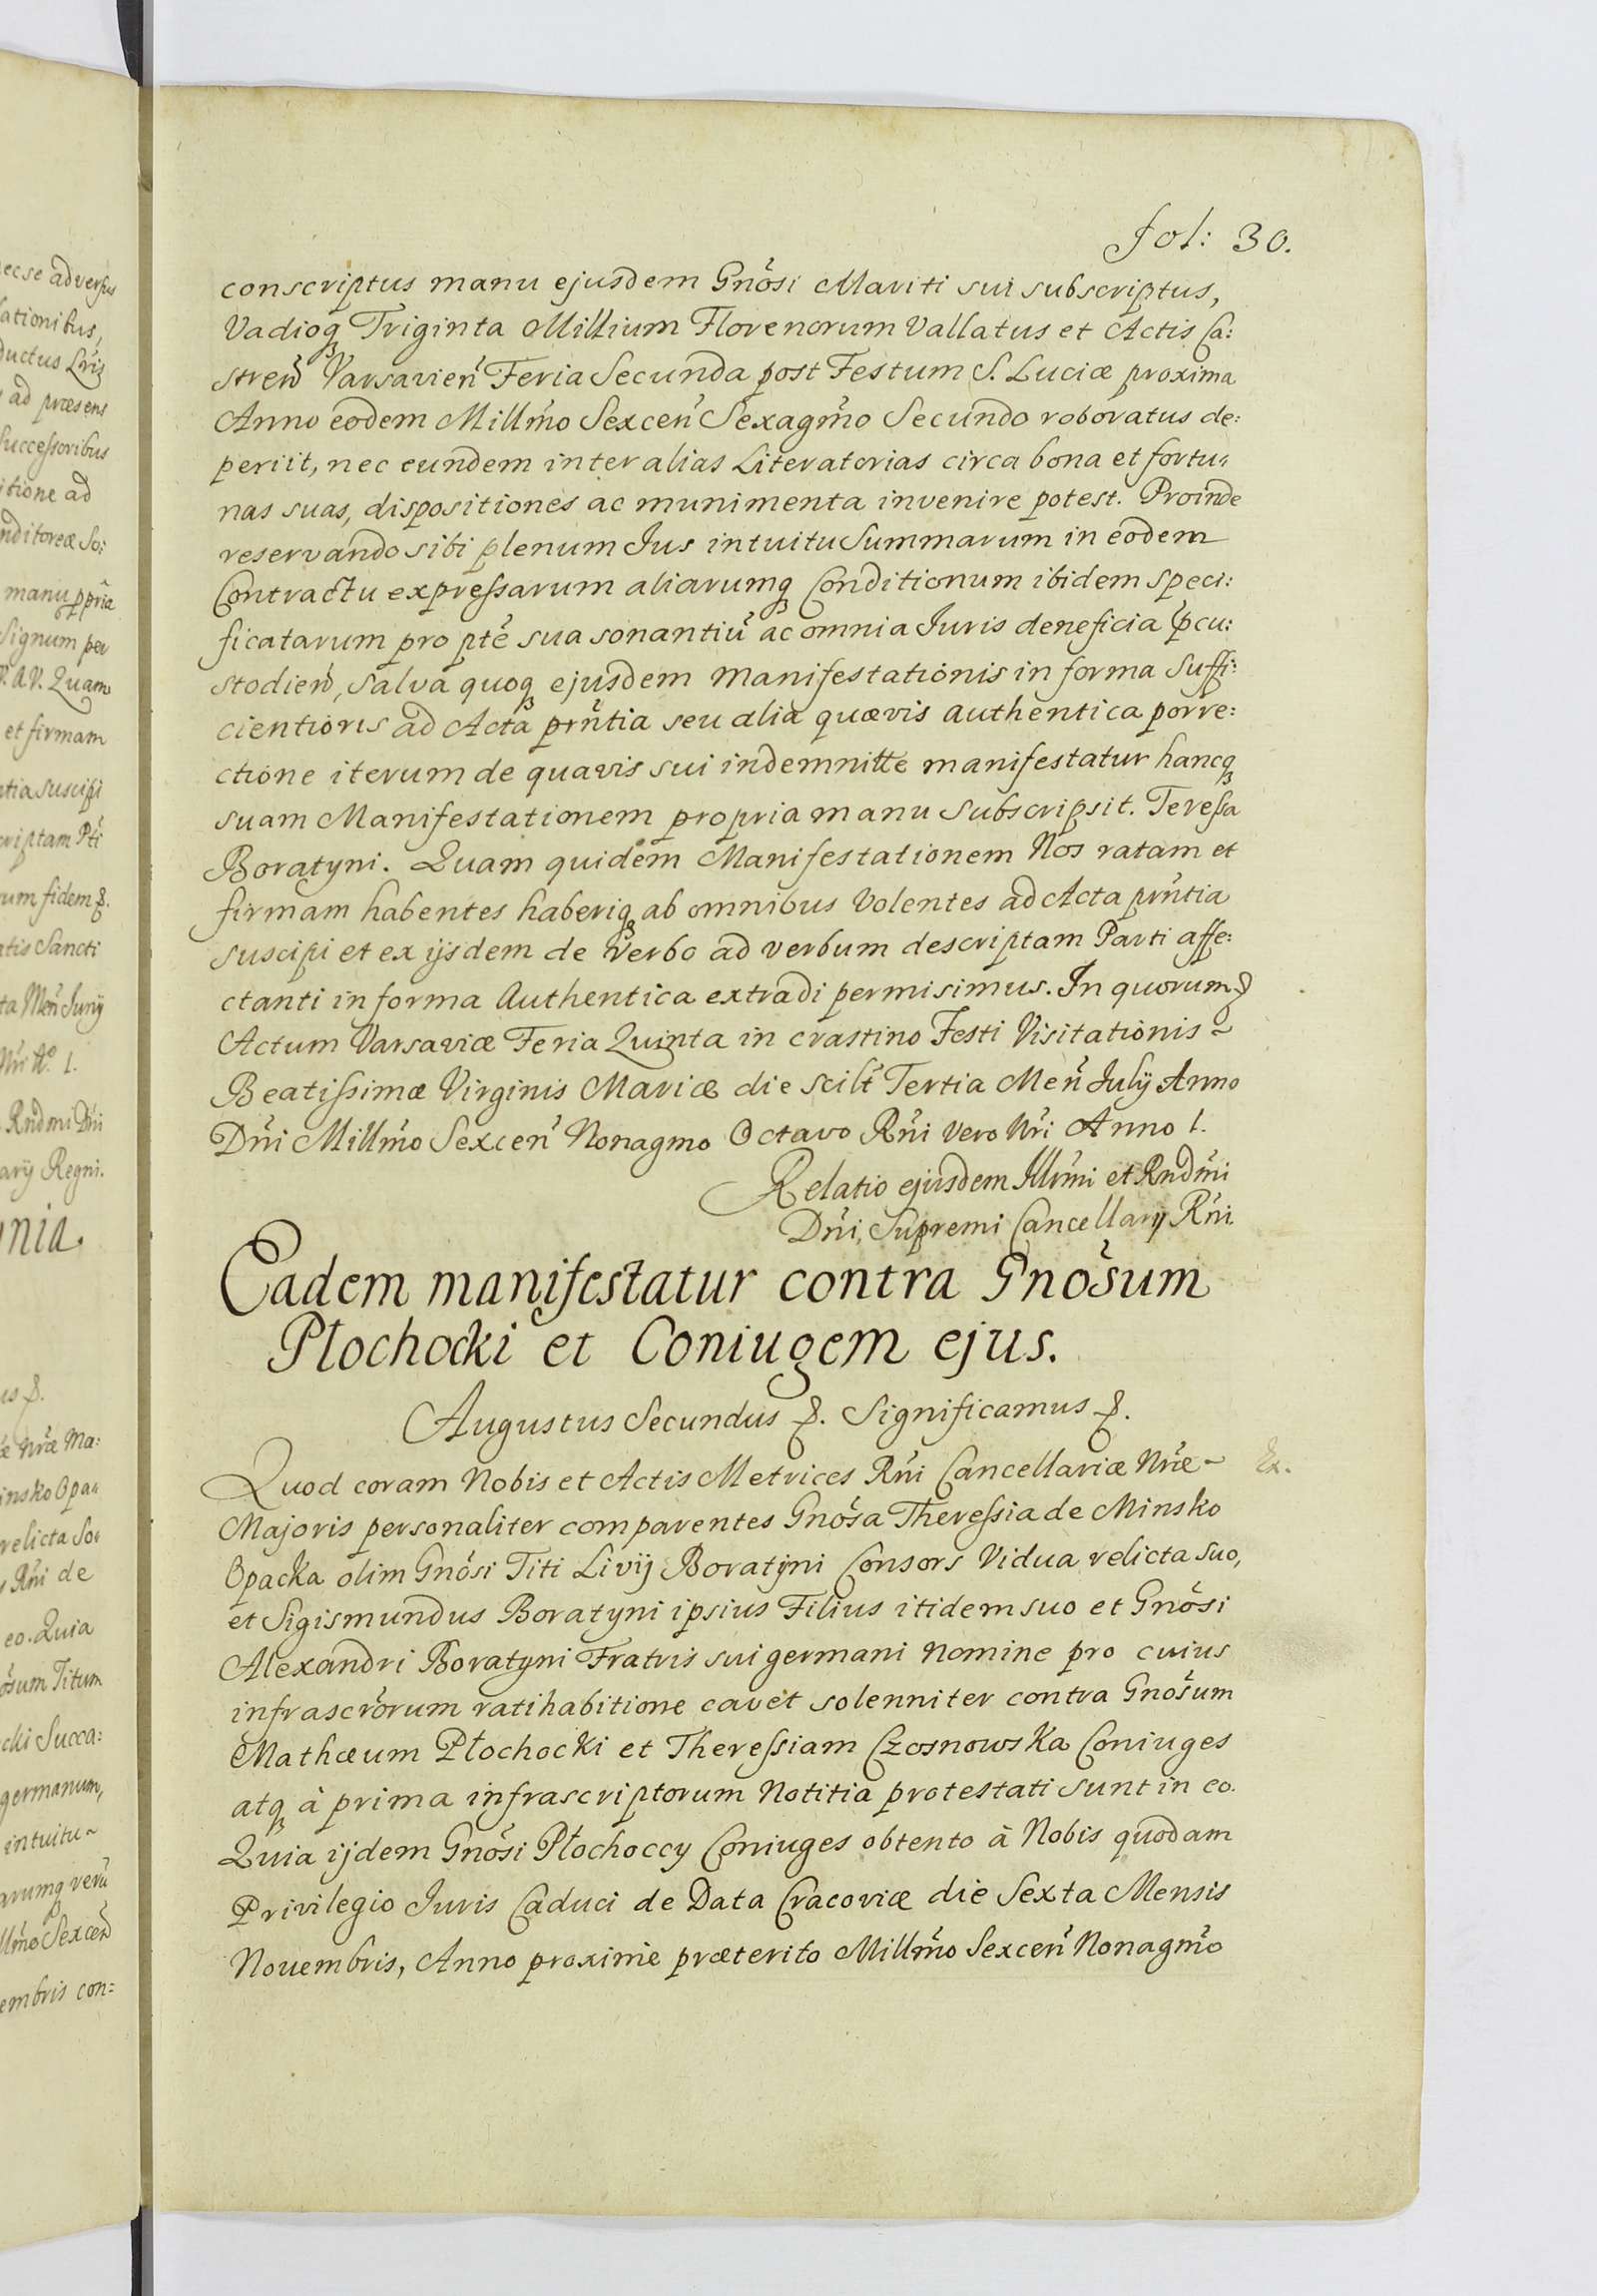 fol: 30.
conscriptus manu ejusdem Gnősi Mariti sui subscriptus,
Vadioq Triginta Millium Florenorum Vallatus et Actis Ca:
stren̄ Varsavien̄ Feria Secunda post Festum S. Luciæ proxima
Anno eodem Millm̄o Sexcen̄ Sexagm̄o Secundo roboratus de:
periit, nec eundem inter alias Literatorias circa bona et fortu:
nas suas, dispositiones ac munimenta invenire potest. Proinde
reservando sibi plenum Jus intuitu Summarum in eodem
Contractu expressarum aliarumq Conditionum ibidem speci:
ficatarum pro pte sua sonantiū ac omnia Juris beneficia p̄cu:
stodien̄, salva quoq ejusdem Manifestationis in forma suffi:
cientioris ad Acta prn̄tia seu alia quævis authentica porre:
ctione iterum de quavis sui indemnitte manifestatur hancq
suam Manifestationem propria manu subscripsit. Teressa
Boratyni. Quam quidem Manifestationem Nos ratam et
firmam habentes haberiq ab omnibus Volentes ad Acta prn̄tia
suscipi et ex ijsdem de verbo ad verbum descriptam Parti affe:
ctanti in forma Authentica extradi permisimus. In quorum &
Actum Varsaviæ Feria Quinta in crastino Festi Visitationis ~
Beatissimæ Virginis Mariæ die scilt Tertia Men̄ Julij Anno
Dn̄i Millm̄o Sexcen̄ Nonagmo Octavo Rn̄i Vero Nr̄i Anno 1.
Relatio ejusdem Illrm̄i et Rndm̄i
Dn̄i, Supremi Cancellarij Rn̄i
Eadem manifestatur contra Gnősum
Płochocki et Coniugem ejus.
Augustus Secundus &. Significamus &.
Quod coram Nobis et Actis Metrices Rn̄i Cancellariæ Nr̄æ ~
Ex.
Majoris personaliter comparentes Gnősa Theressia de Minsko
Opacka olim Gnősi Titi Livij Boratÿni Consors Vidua relicta suo,
et Sigismundus Boratyni ipsius Filius itidem suo et Gnősi
Alexandri Boratyni Fratris sui germani Nomine pro cuius
infrascr̄orum ratihabitione cavet solenniter contra Gnősum
Mathæum Płochocki et Theressiam Czosnowska Coniuges
atq à prima infrascriptorum Notitia protestati sunt in eo.
Quia ijdem Gnősi Płochoccy Coniuges obtento à Nobis quodam
Privilegio Juris Caduci de Data Cracoviæ die Sexta Mensis
Nouembris, Anno proxime præterito Millm̄o Sexcen̄ Nonagm̄o